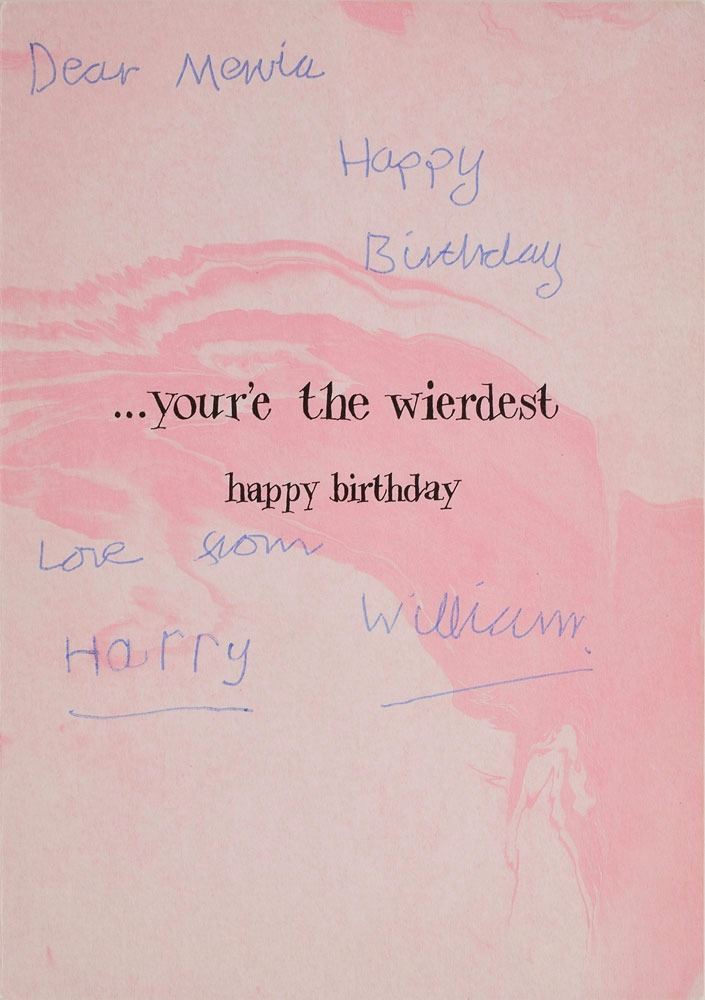 Dear Mervia
Happy
Birthday
...your'e the wierdest
happy birthday
Love from
William.
Harry